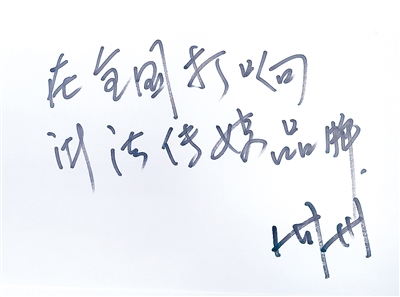 在全国打响
浙法传媒品牌.